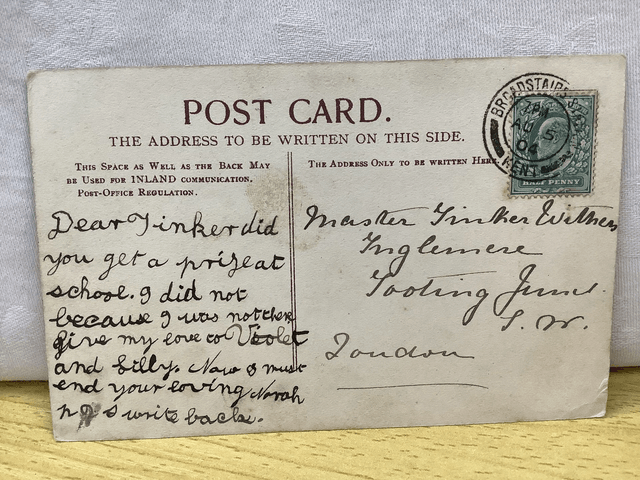 POST CARD.
THE ADDRESS TO BE WRITTEN ON THIS SIDE.
THIS SPACE AS WELL AS THE BACK MAY
BE USED FOR INLAND COMMUNICATION.
POST-OFFICE REGULATION.
Dear Tinker did
you get a prize at
school. I did not
because I was not there
give my love to Violet
and billy. Now I must
end your loving Norah
write back.
THE ADDRESS ONLY TO BE WRITTEN HERE.
Master Tinker
Inglemere
Tooting Junc.
S. W.
London
BROADSTAIRS
AU 5
04
KENT
HALF PENNY